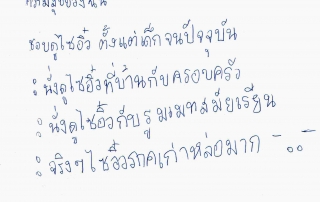 ชอบดูไซอิ๋ว ตั้งแต่เด็กจนปัจจุบัน
: นั่งดูไซอิ๋วที่บ้านกับครอบครัว
: นั่งดูไซอิ๋วกับรูมเมทสมัยเรียน
: จริงๆไซอิ๋วภาคเก่าหล่อมาก